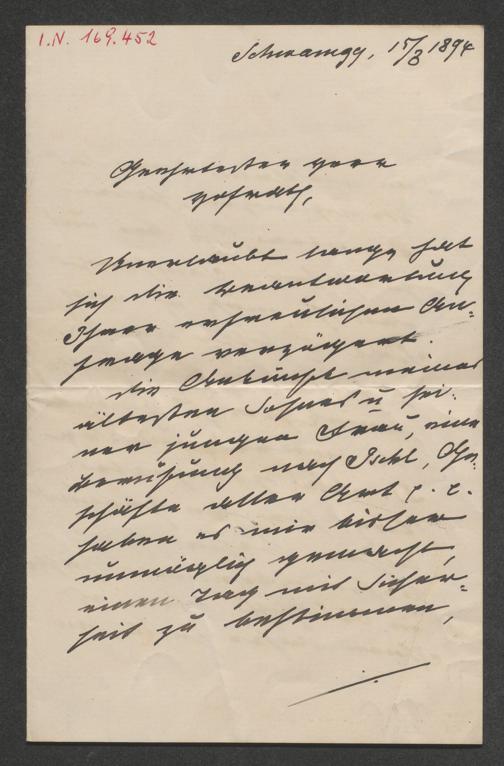 I.N. 169.452
Schwanegg, 15/8 1894
Geehrtester Herr
Hofrath,
Unerlaubt lange hat
sich die Beantwortung
Ihrer erfreulichen An-
frage verzögert.
Die Ankunft meines
ältesten Sohnes u. sei-
ner jungen Frau, eine
Berufung nach Ischl, Ge-
schäfte aller Art p. c.
haben es mir bisher
unmöglich gemacht,
einen Tag mit Sicher-
heit zu bestimmen,